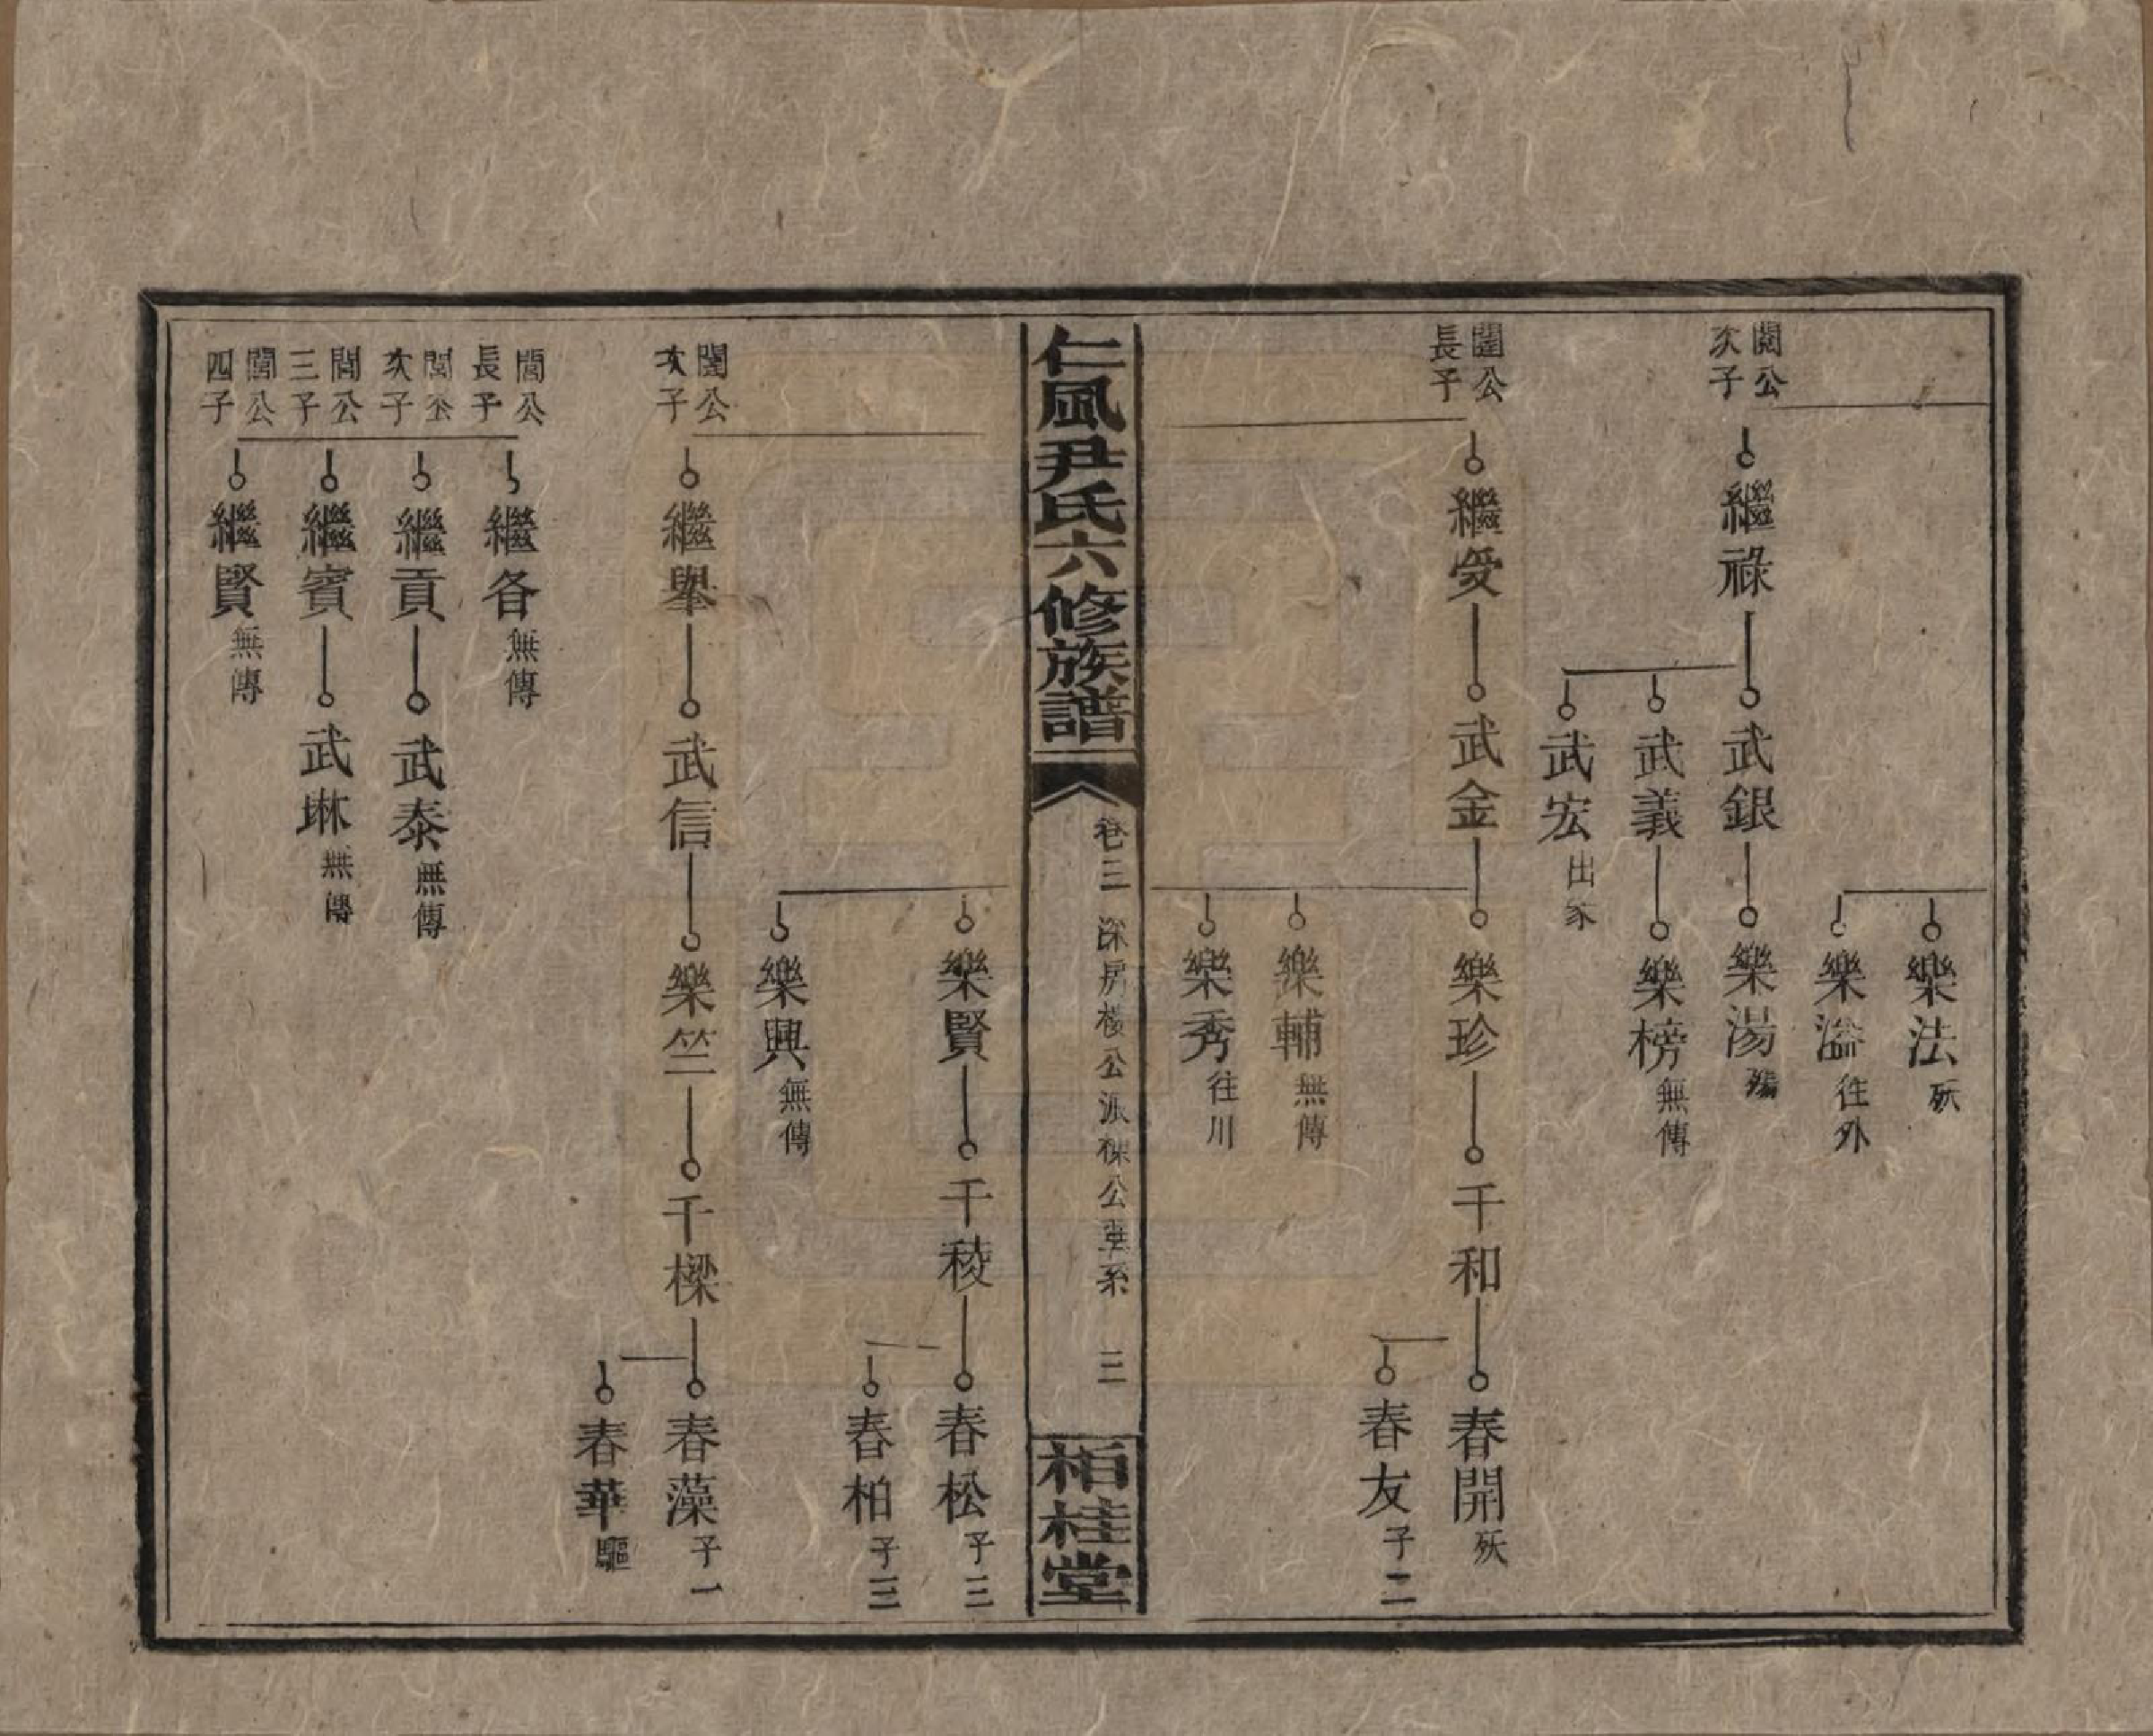 樂法 殀
樂溢 往外
閱公次子
繼祿
武銀
樂湯 殤
武義
樂榜 無傳
武宏 出家
閨公長子
繼受
武金
樂珍
千和
春開 殀
春友 子二
樂輔 無傳
樂秀 往川
仁風尹氏六修族譜
卷三
三
栢桂堂
樂賢
千稜
春松 子三
春柏 子三
樂興 無傳
次子
繼舉
武信
樂竺
千樑
春藻 子一
春華
長子
繼各 無傳
次子
繼貢
武泰 無傳
三子
繼賓
武琳 無傳
四子
繼賢 無傳